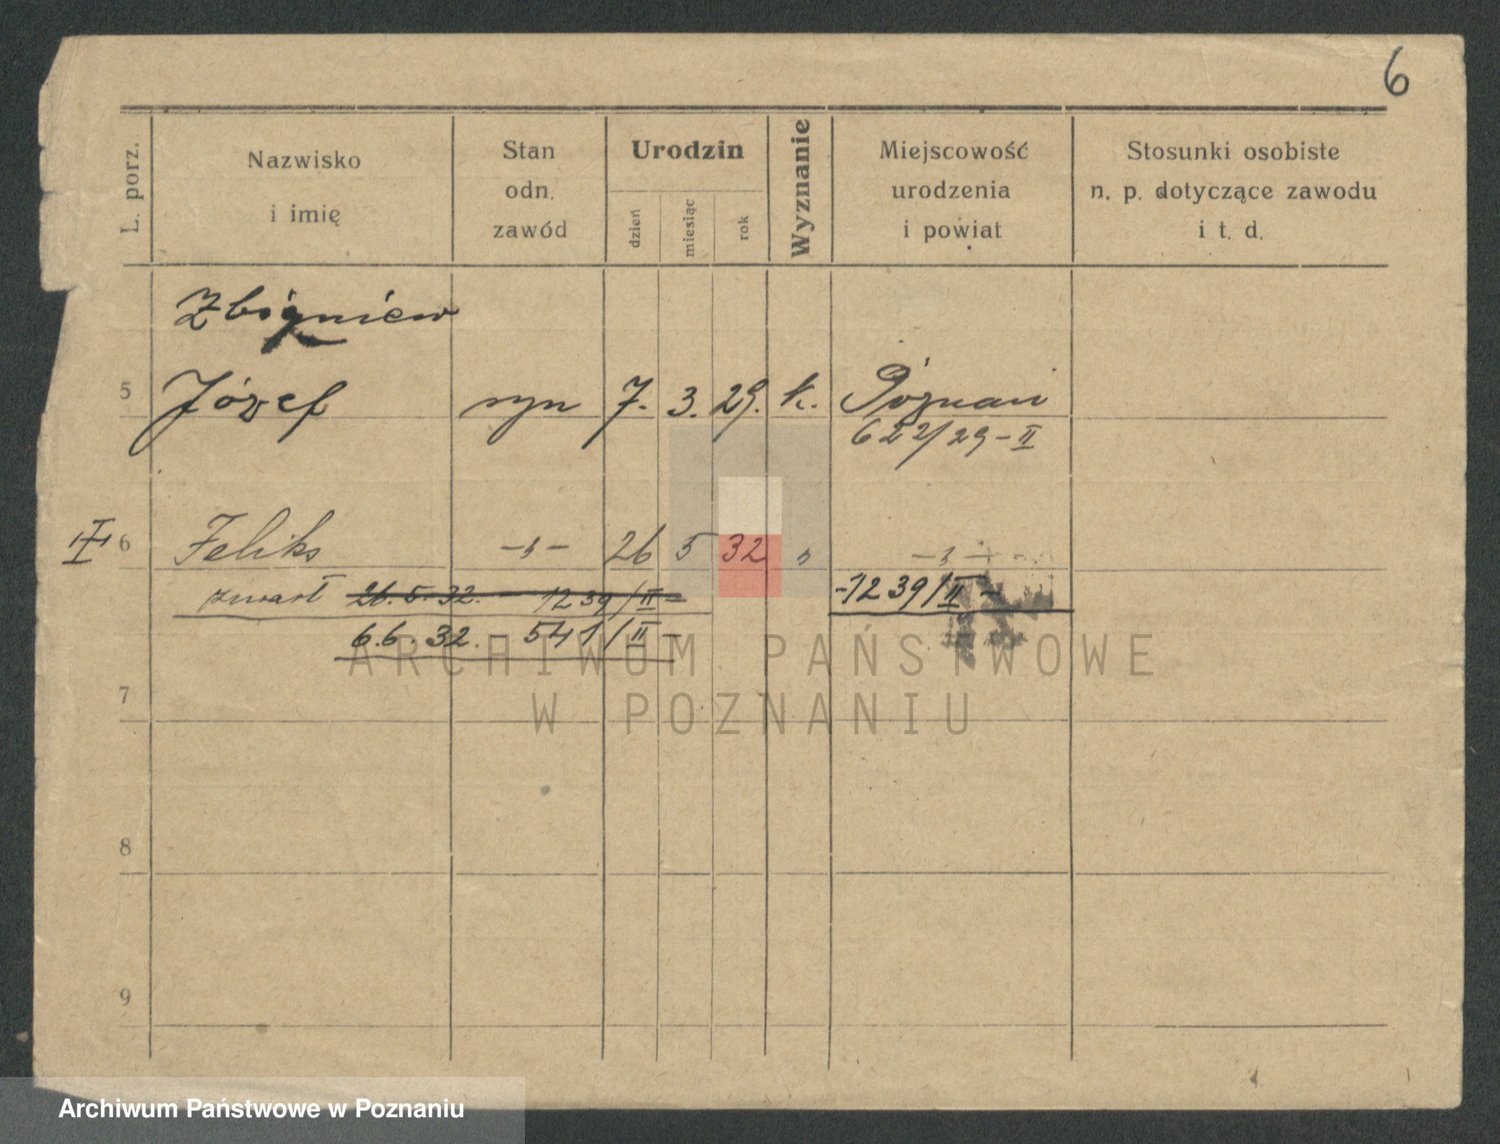 6
L. porz.
Nazwisko
i imię
Stan
odn.
zawód
Urodzin
dzień
miesiąc
rok
Wyznanie
Miejscowość
urodzenia
i powiat
Stosunki osobiste
n. p. dotyczące zawodu
i t. d.
Zbigniew
5 Józef syn 7. 3. 29. k. Poznań
622/29-II
6 Feliks -„- 26 5 32 „ -„-
zmarł 26.5.32. - 1239/II - -1239/II-
6.6.32. 541/II-
7
8
9
ARCHIWUM PAŃSTWOWE
W POZNANIU
Archiwum Państwowe w Poznaniu